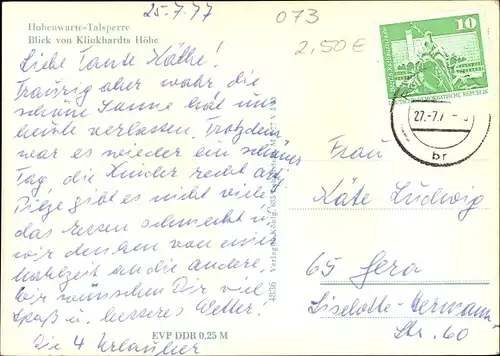 25.7.77
073
2,50 €
Hohenwarte-Talsperre
Blick von Klinkhardts Höhe
Liebe Tante Käthe!
Traurig aber wahr, die
schöne Sonne hat uns
heute verlassen. Trotzdem
war es wieder ein schöner
Tag, die Kinder recht artig.
gibt es nicht viel,
das Essen schmeckt u.
wir denken von einer
Mahlzeit an die andere.
Wir wünschen Dir viel
Spaß u. besseres Wetter!
Die 4 Urlauber
EVP DDR 0.25 M
4836 Verlag
10
DEUTSCHE DEMOKRATISCHE REPUBLIK
27.-7.7
br
Frau
Käte Ludwig
65 Gera
Liselotte-Hermann-
Str. 60